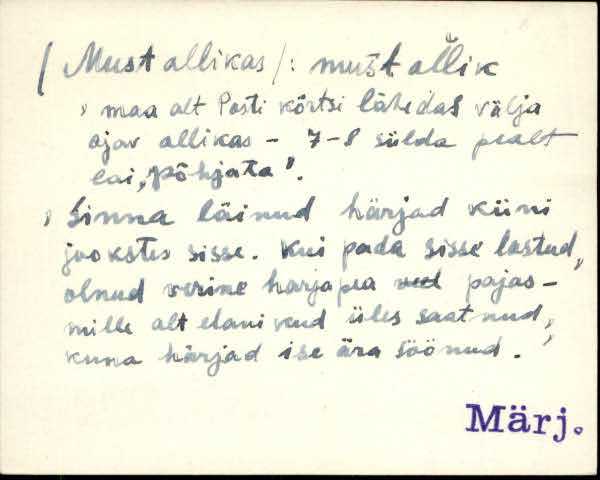 / Must allikas /: mušt aĺĺik
, maa alt Posti kõrtsi lähedas välja
ajav allikas - 7-8 sülda pealt
lai, "põhjata".
, Sinna läinud härjad kiini
jookstes sisse. Kui pada sisse lastud,
olnud verine härjapea pajas -
mille alt elanikud üles saatnud,
kuna härjad ise ära söönud.
Märj.